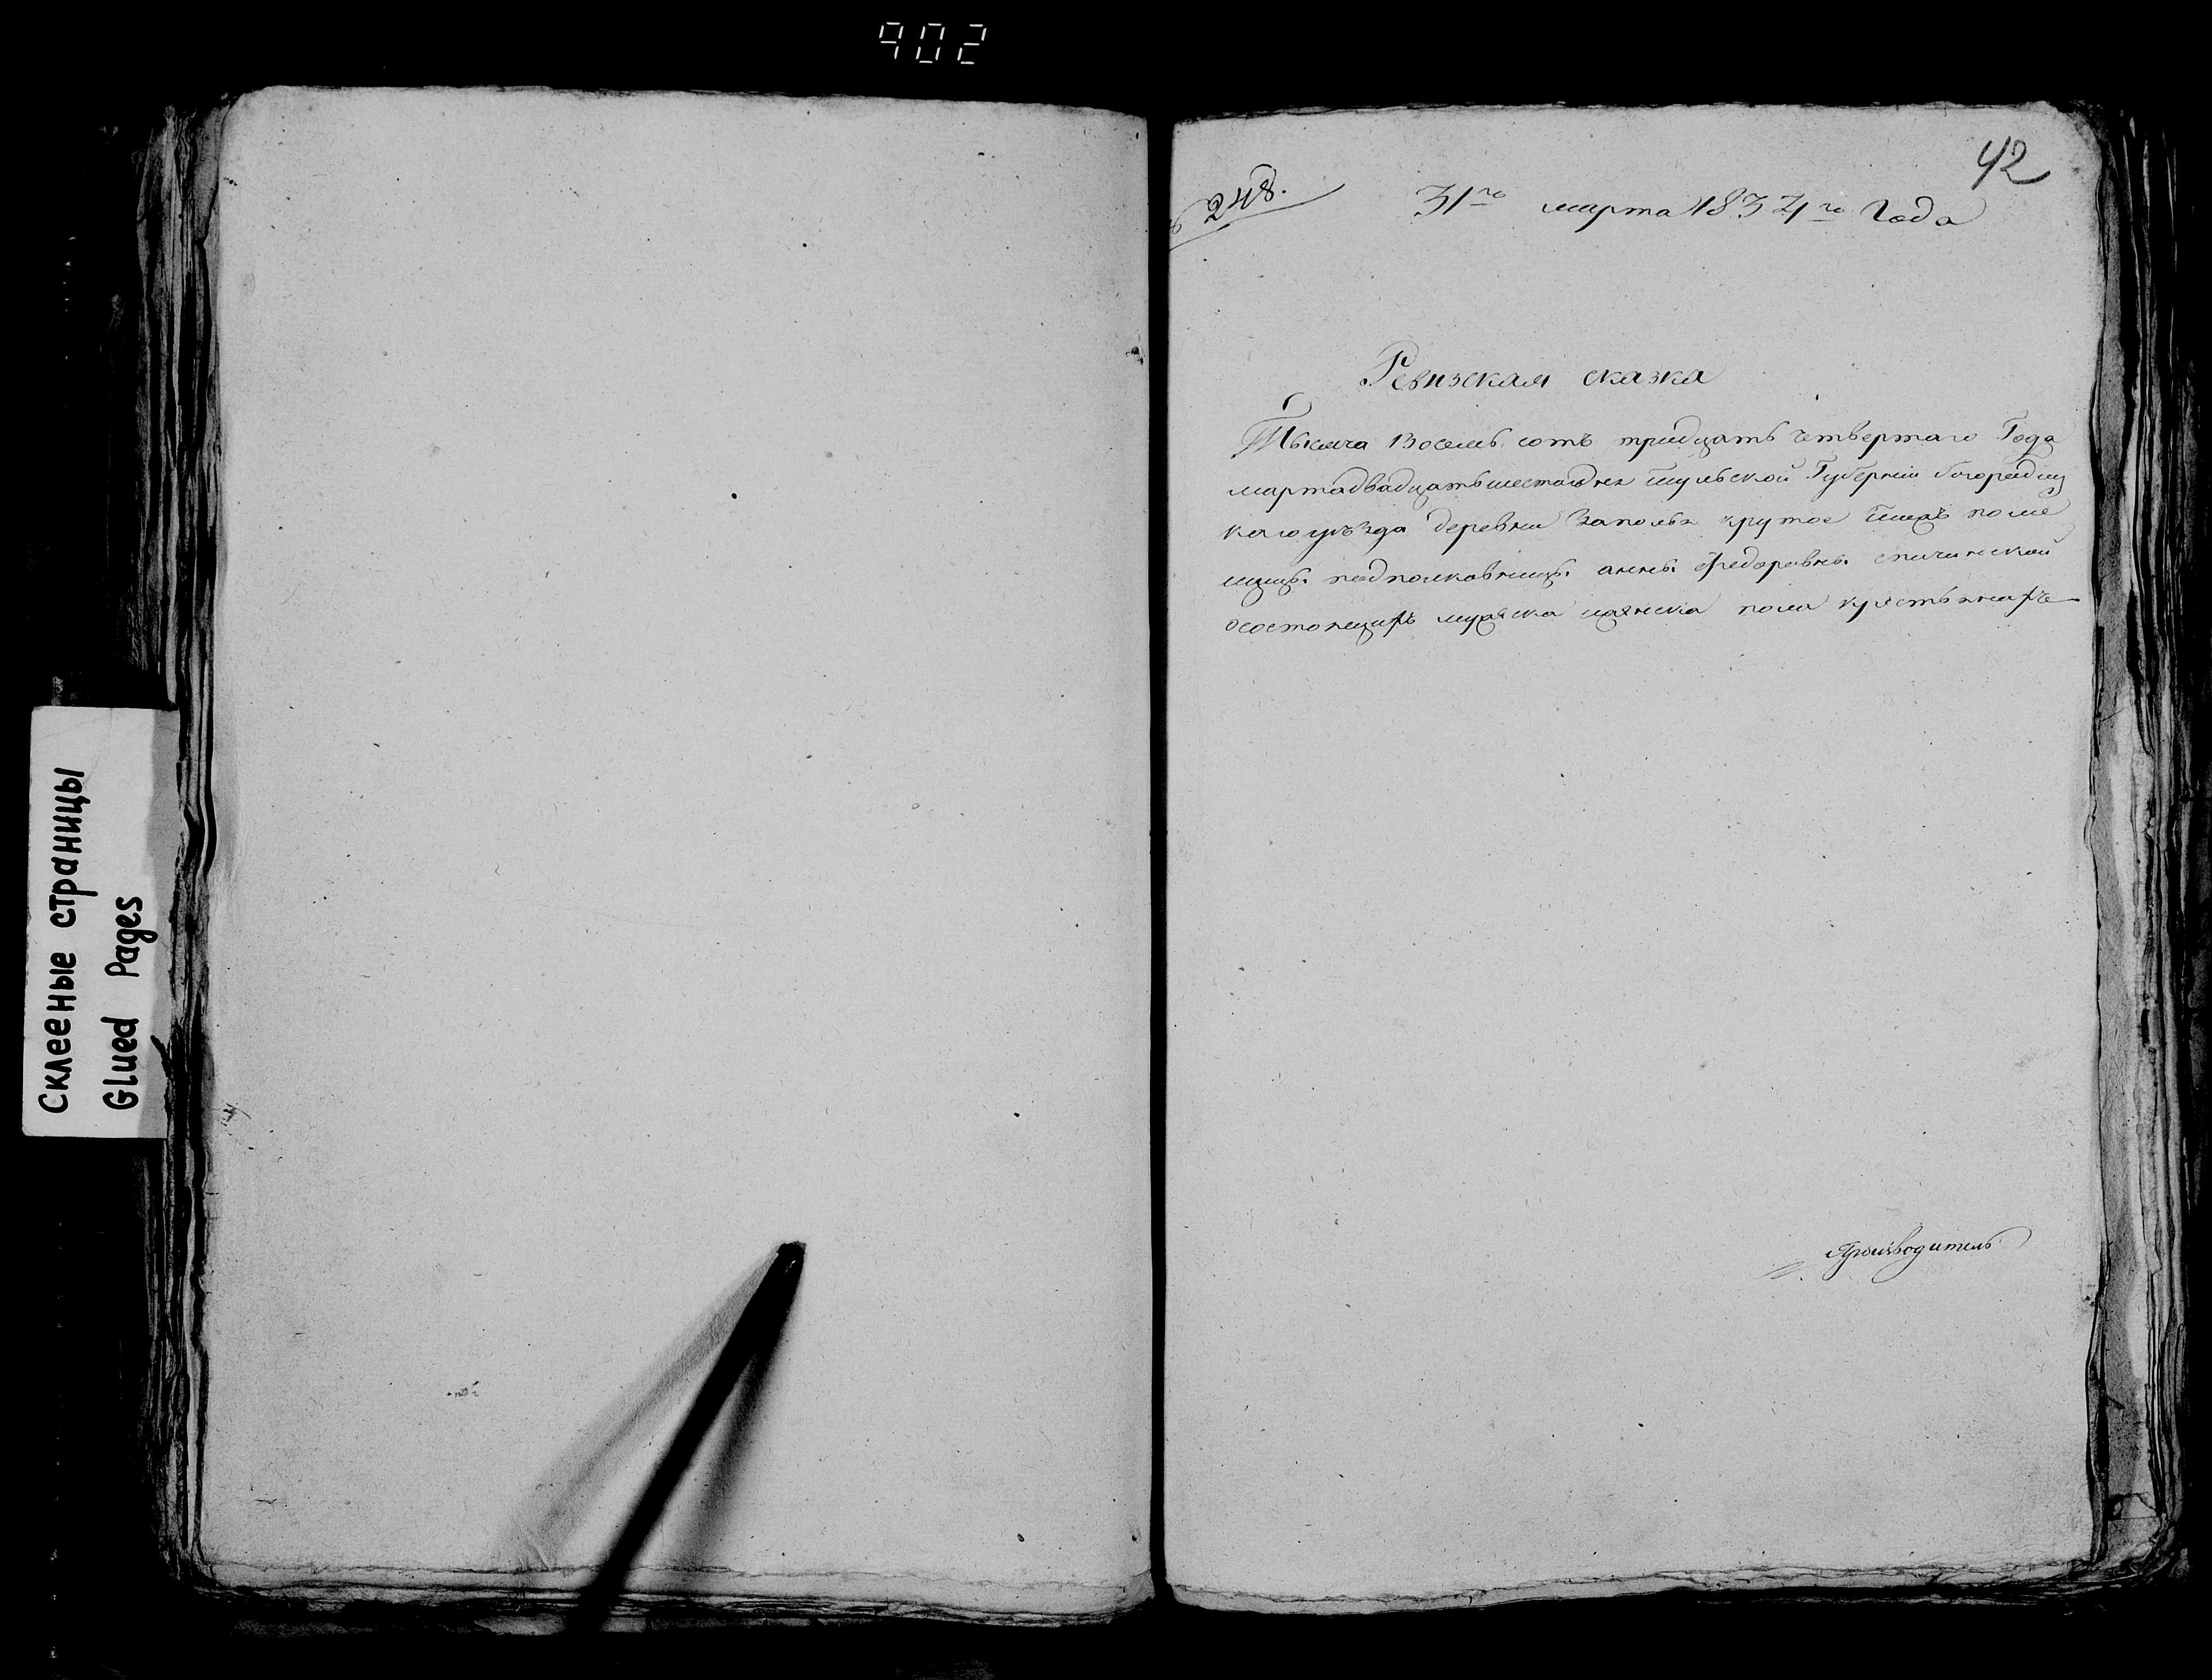 902
Склееные страницы
Glued Pages
42
248.
31го марта 1834го Года
Ревизская сказка
Тысяча Восемь сотъ тридцать четвертаго Года
марта двадцать шестаго дня тульской Губерніи богородиц
каго уѣзда деревни Заполья крутое тожъ поме
щицы подполковницы анны Федоровны
осостоящихъ мужска иженска пола крестьянахъ
Производитель